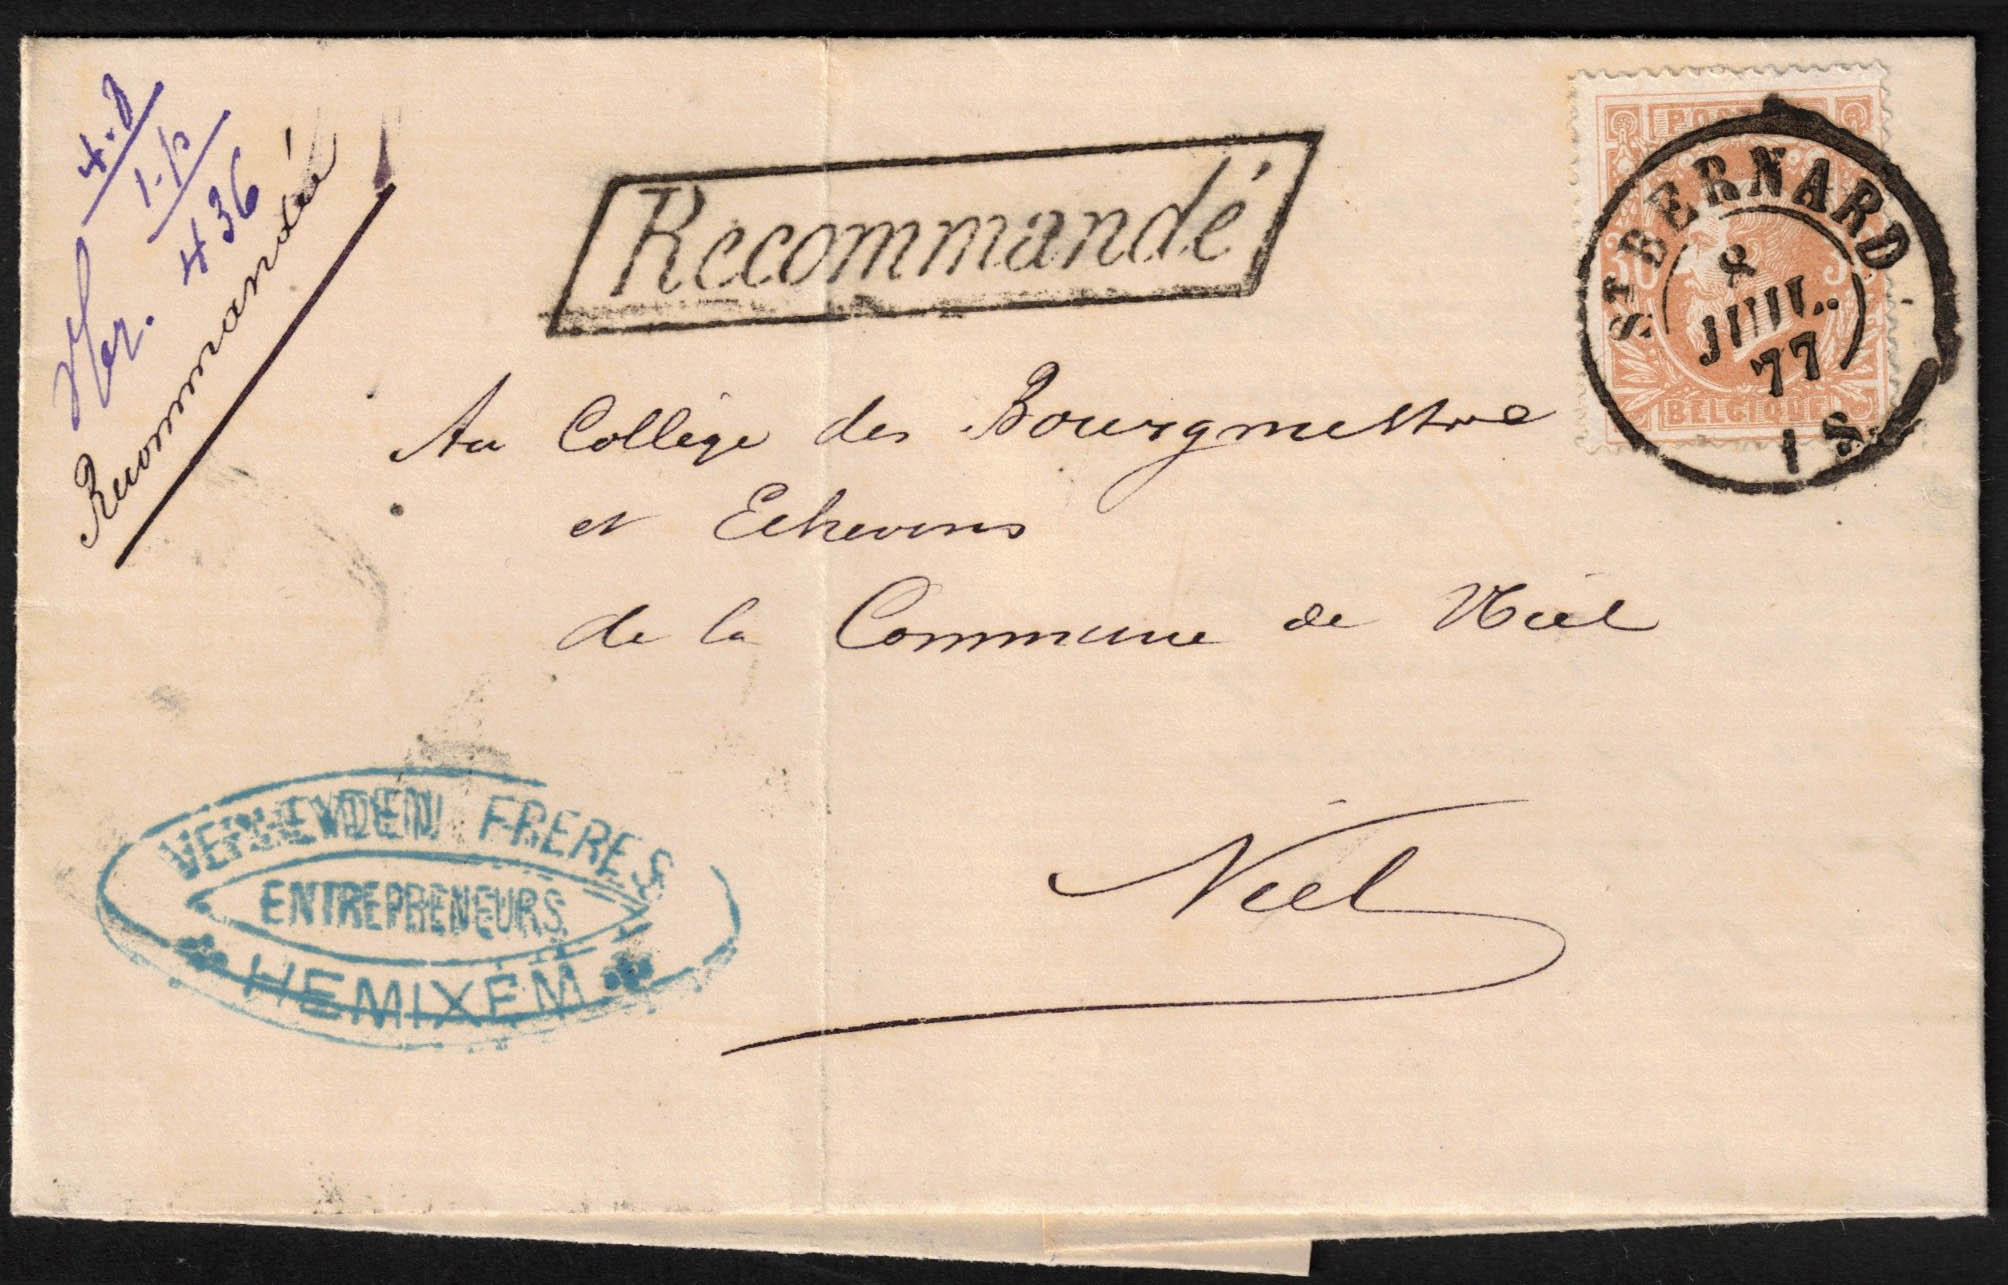 4-8
1-p
436
Recommandée
Recommandé
POSTES
30
BELGIQUE
ST BERNARD
JUIL.
77
1 S
Au Collège des Bourgmestre
et Echevins
de la Commune de Niel
Niel
VERHEYDEN FRERES
ENTREPRENEURS
HEMIXEM